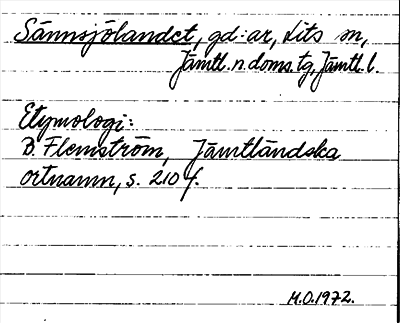 Sännsjölandet, gd:ar, Lits sn,
Jämtl. n. doms. tg, Jämtl. l.
Etymologi:
B. Flemström, Jämtländska
ortnamn, s. 210 f.
M.O. 1972.